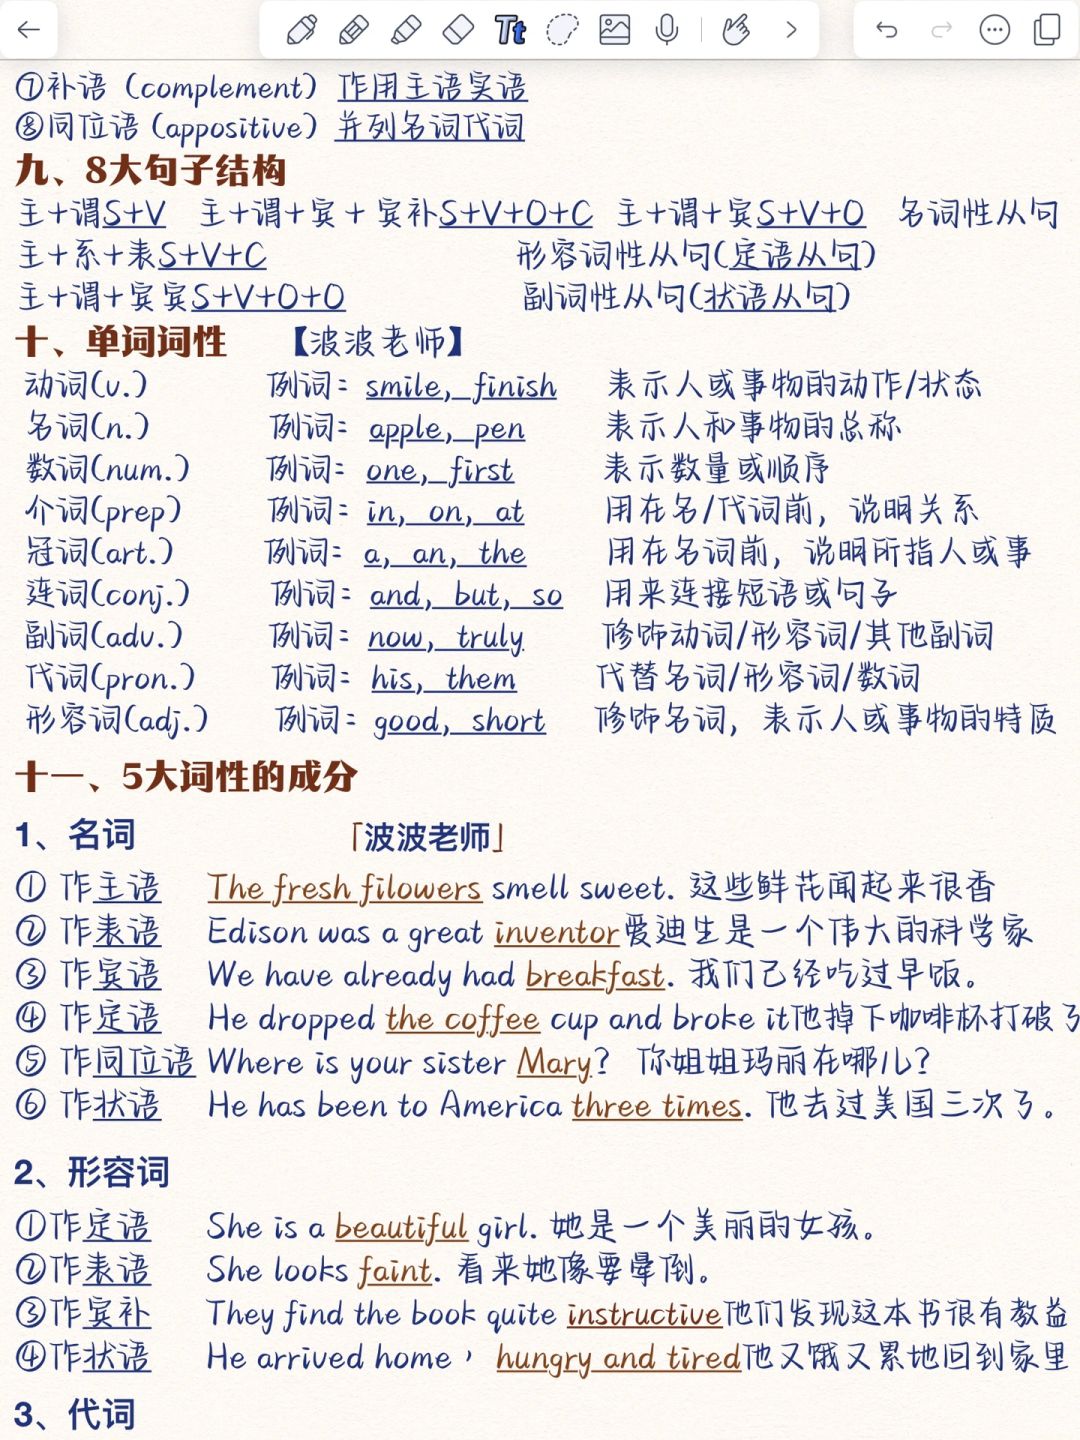 Tt
⑦补语（complement）作用主语宾语
⑧同位语（appositive）并列名词代词
九、8大句子结构
主+谓S+V 主+谓+宾+宾补S+V+O+C 主+谓+宾S+V+O 名词性从句
主+系+表S+V+C 形容词性从句(定语从句)
主+谓+宾宾S+V+O+O 副词性从句(状语从句)
十、单词词性 【波波老师】
动词(v.) 例词：smile, finish 表示人或事物的动作/状态
名词(n.) 例词：apple, pen 表示人和事物的总称
数词(num.) 例词：one, first 表示数量或顺序
介词(prep) 例词：in, on, at 用在名/代词前，说明关系
冠词(art.) 例词：a, an, the 用在名词前，说明所指人或事
连词(conj.) 例词：and, but, so 用来连接短语或句子
副词(adv.) 例词：now, truly 修饰动词/形容词/其他副词
代词(pron.) 例词：his, them 代替名词/形容词/数词
形容词(adj.) 例词：good, short 修饰名词，表示人或事物的特质
十一、5大词性的成分
1、名词 「波波老师」
① 作主语 The fresh filowers smell sweet. 这些鲜花闻起来很香
② 作表语 Edison was a great inventor爱迪生是一个伟大的科学家
③ 作宾语 We have already had breakfast. 我们已经吃过早饭。
④ 作定语 He dropped the coffee cup and broke it他掉下咖啡杯打破了
⑤ 作同位语 Where is your sister Mary? 你姐姐玛丽在哪儿?
⑥ 作状语 He has been to America three times. 他去过美国三次了。
2、形容词
①作定语 She is a beautiful girl. 她是一个美丽的女孩。
②作表语 She looks faint. 看来她像要晕倒。
③作宾补 They find the book quite instructive他们发现这本书很有教益
④作状语 He arrived home， hungry and tired他又饿又累地回到家里
3、代词